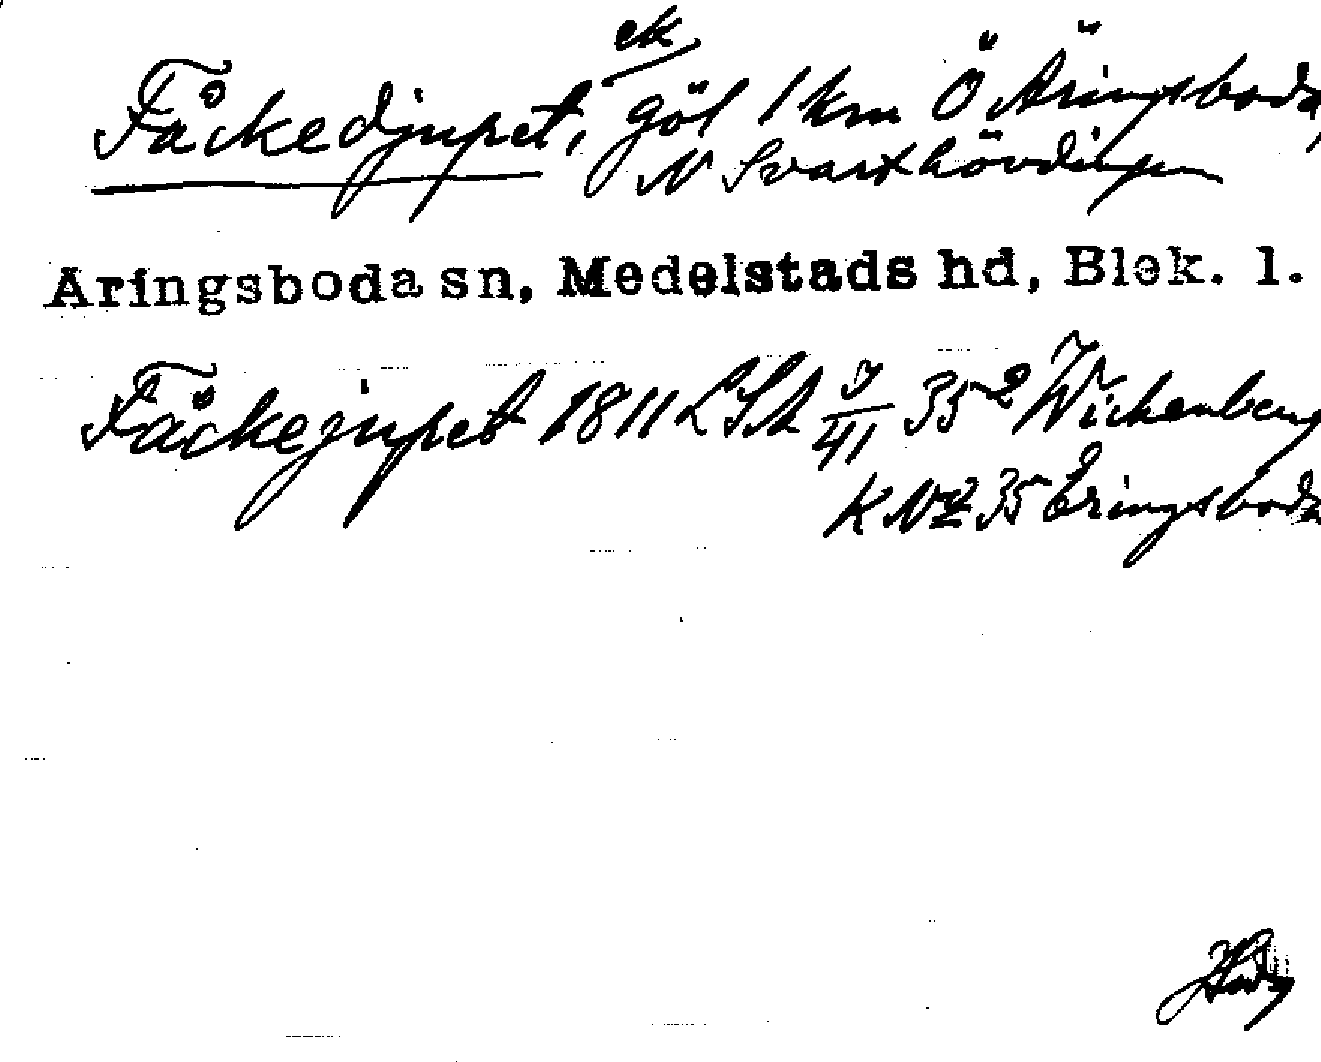 ek
Fåckedjupet, göl 1 km Ö Äringsboda,
N Svarthövdingen
Aringsboda sn, Medelstads hd, Blek. l.
Fåckejupet 1811 LSA 41 35² Wickenberg
K Nr 35 Eringsboda